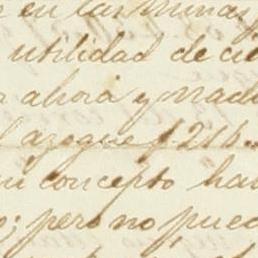 en las minas
utilidad de
ahora y nad
azogue f. 216.
concepto ha
; pero no pued